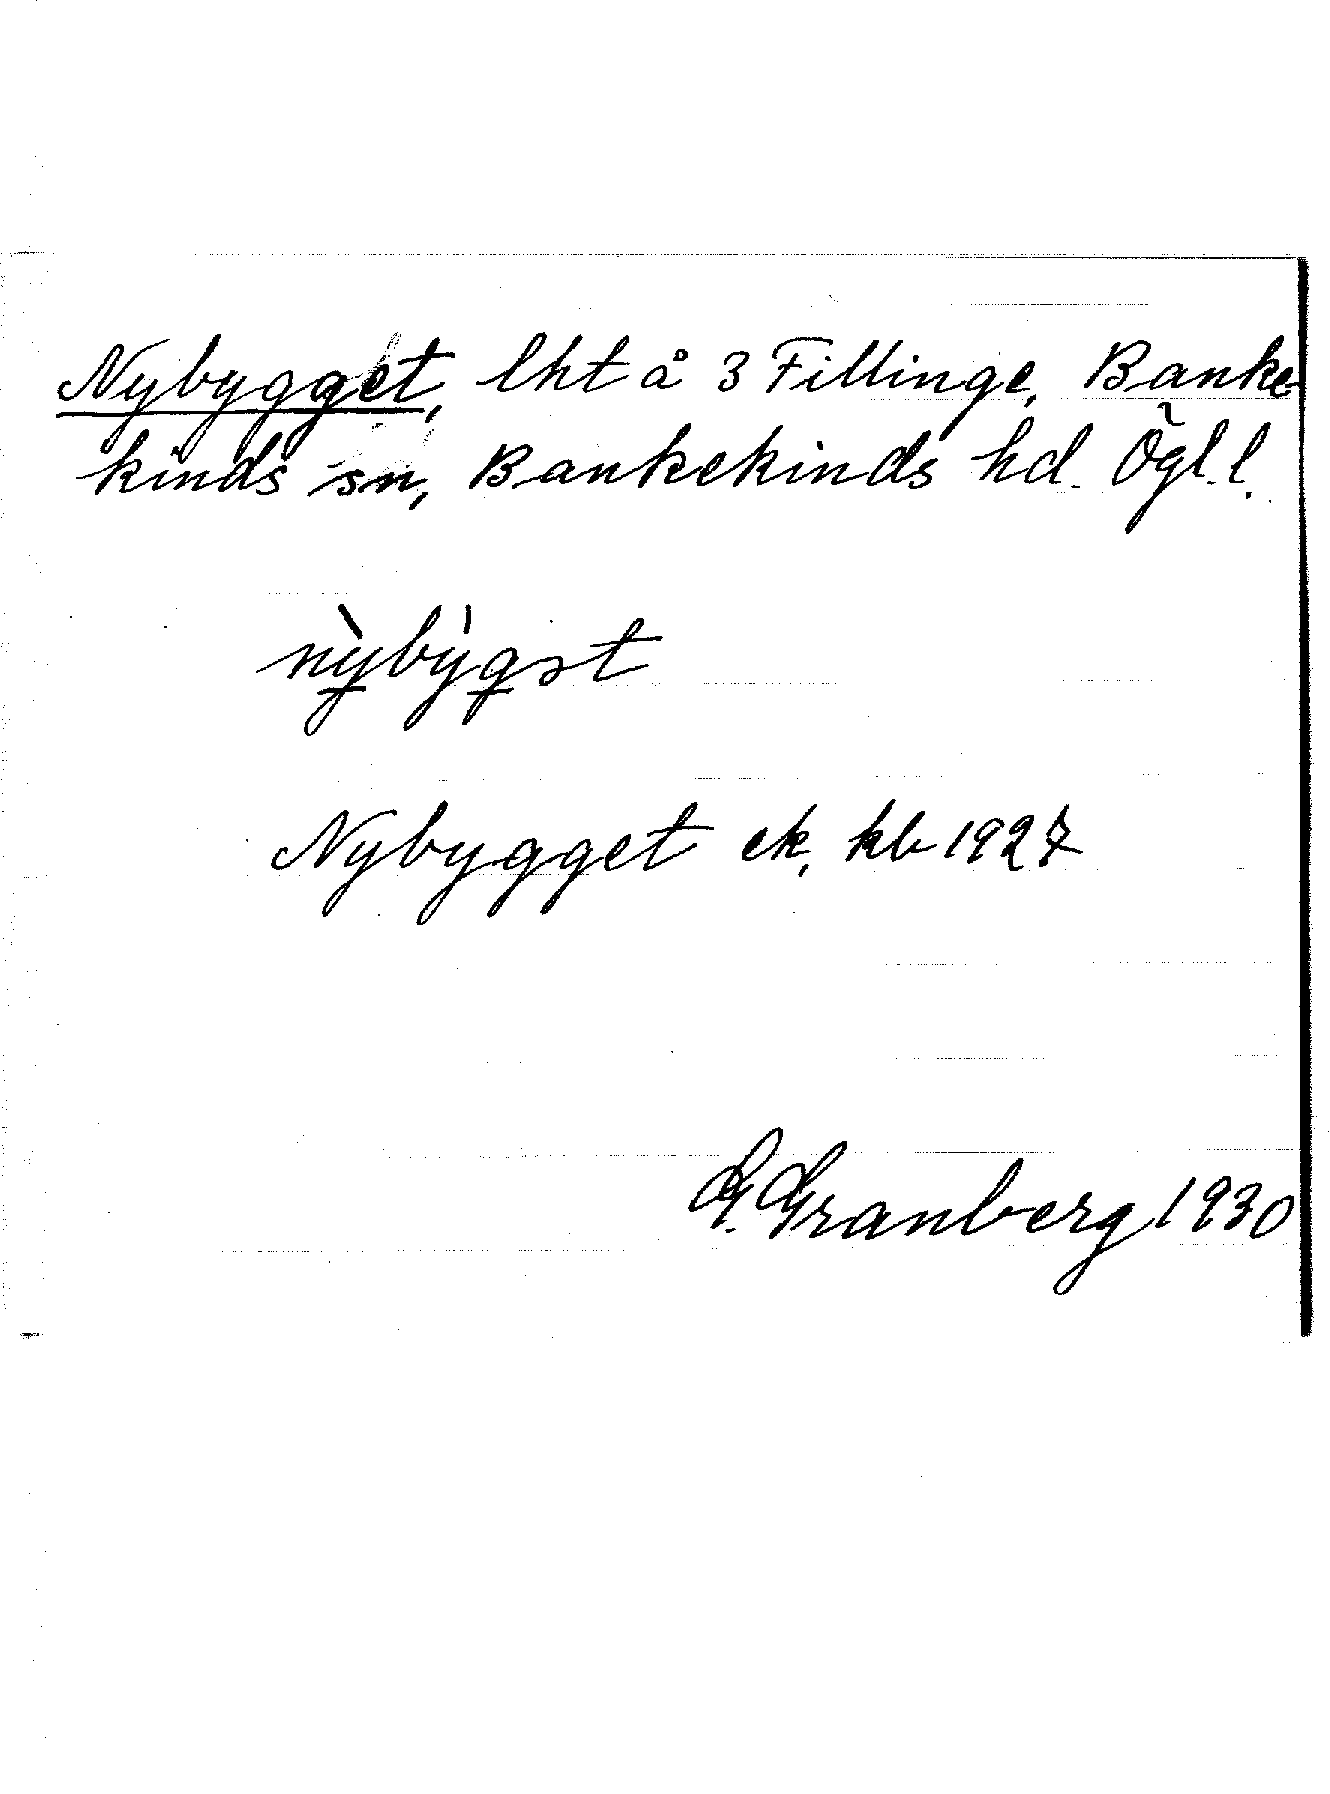 Nybygget, lht å 3 Fillinge, Banke-
kinds sn, Bankekinds hd. Ögl. l.
nỳbỳgət
Nybygget ek, kb 1927
G. Granberg 1930